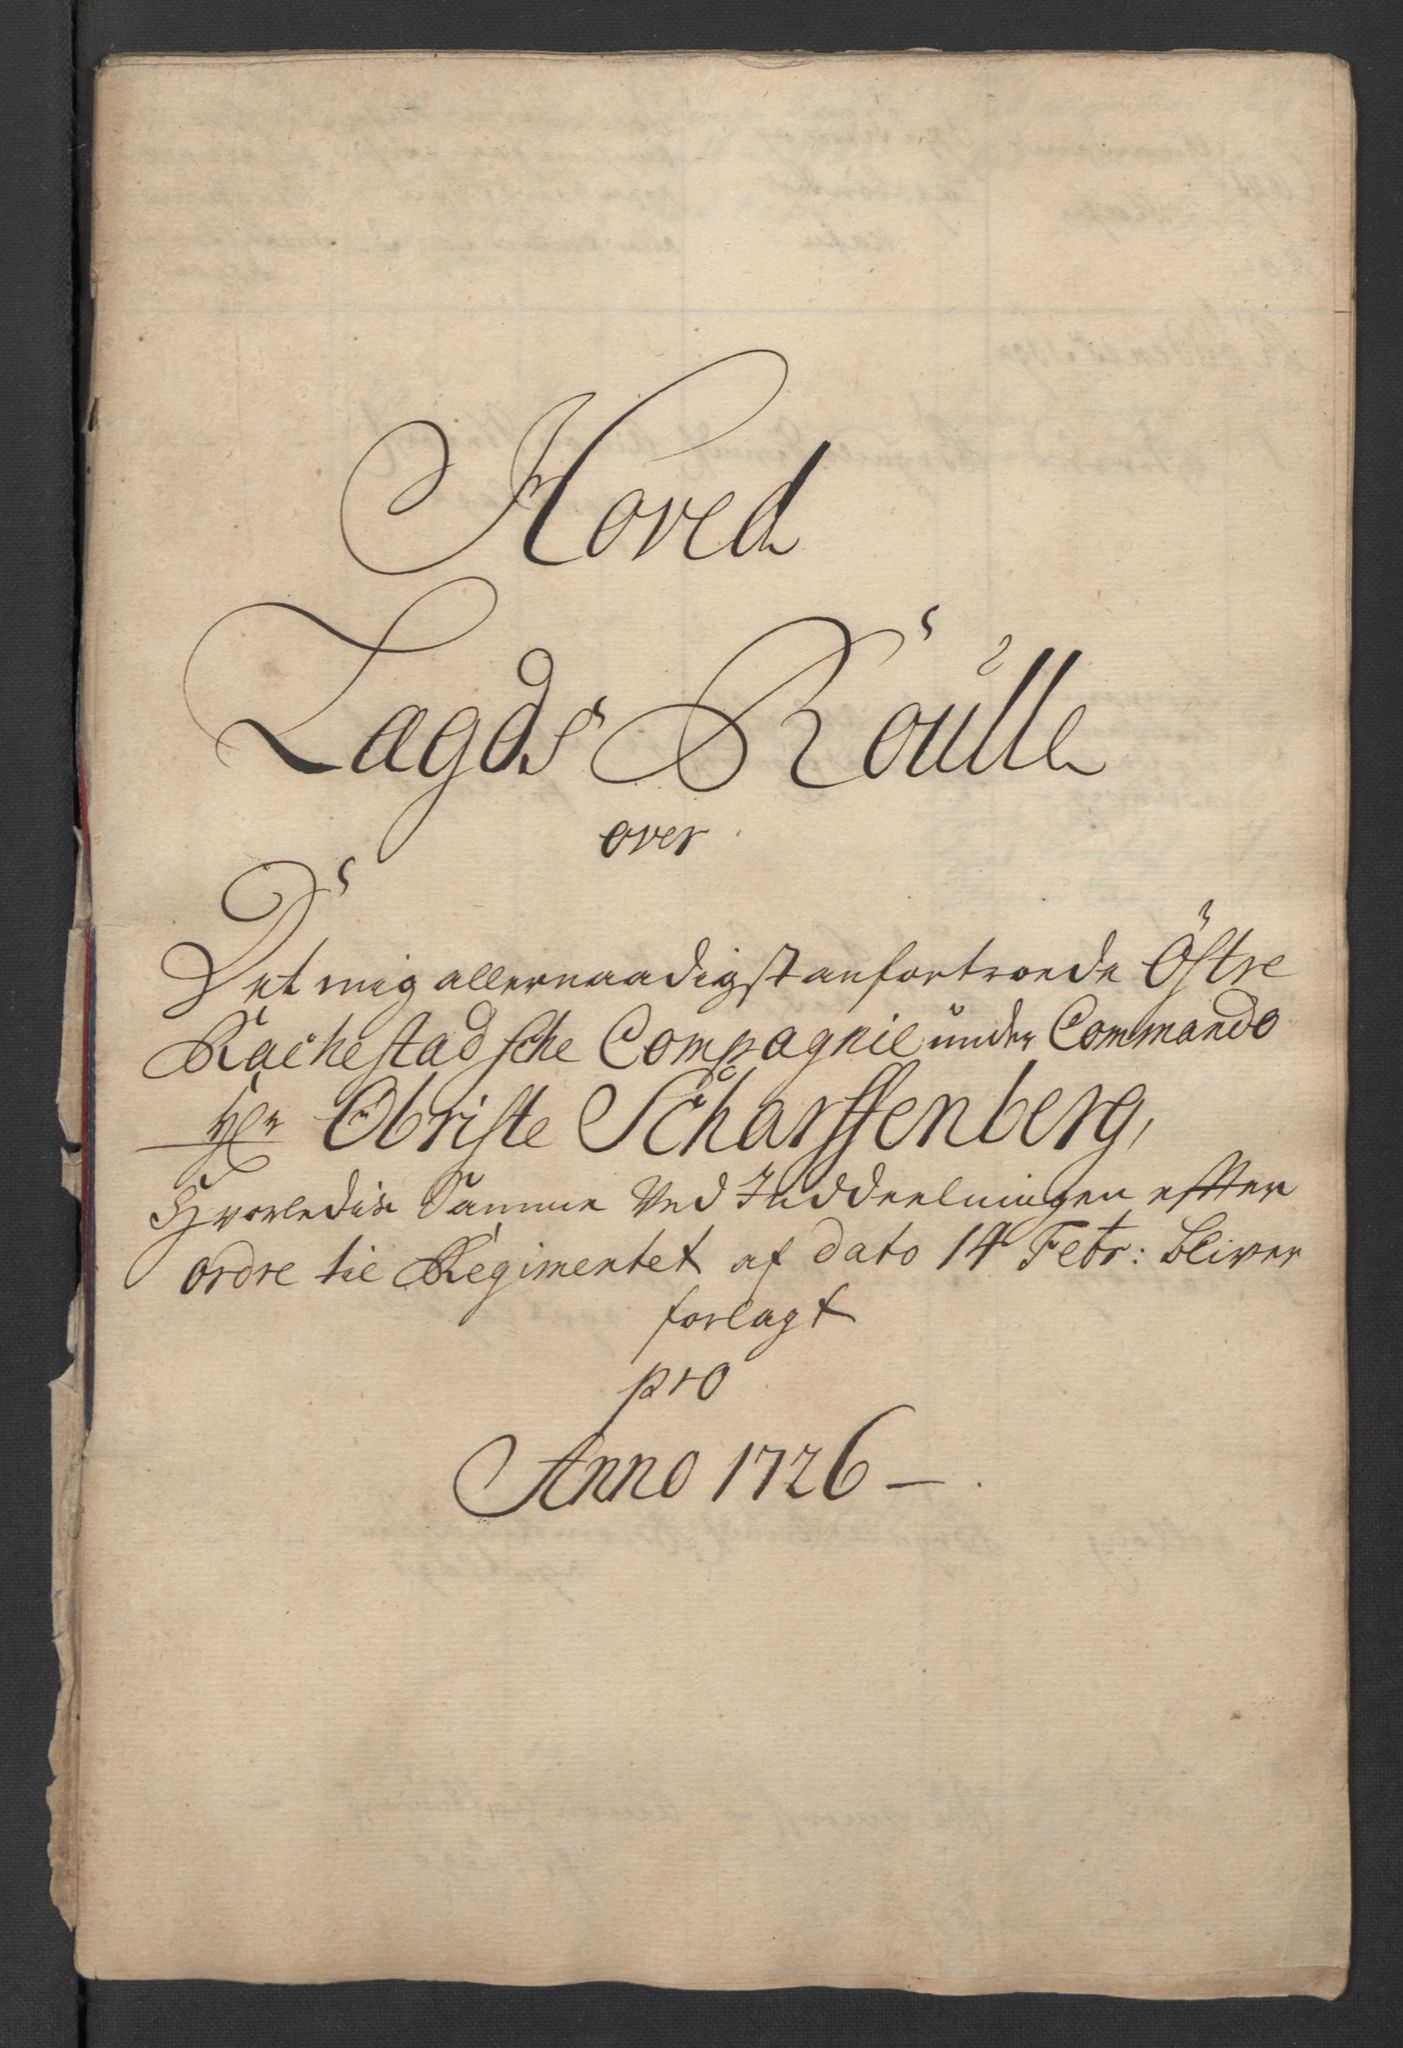 Hoved
Lagds Roülle
over
Det mig allernaadigst anfortroede Östre
Rachestadsche Compagnie ünder Commando
Hr Obriste Scharffenberg,
Hvorledis Samme Ved Inddeelningen effter
ordre til Regimentet af dato 14 Febr: bliver
forlagt
pro
Anno 1726 –